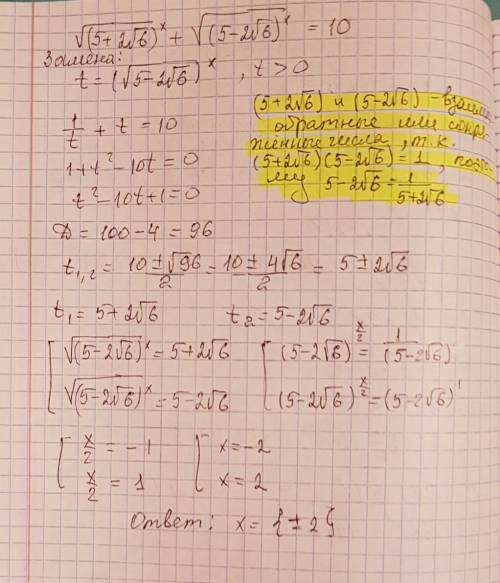 √(5+2√6)^x + √(5-2√6)^x = 10
Замена:
t = (√5-2√6)^x, t > 0
(5+2√6) и (5-2√6) - взаимн.
обратные или сопря-
жённые числа, т.к.
(5+2√6)(5-2√6) = 1, поэт-
му 5-2√6 = 1/(5+2√6)
1/t + t = 10
1+t²-10t=0
t²-10t+1=0
D = 100-4 = 96
t₁,₂ = (10±√96)/2 = (10±4√6)/2 = 5±2√6
t₁ = 5+2√6 t₂ = 5-2√6
[ √(5-2√6)^x = 5+2√6 [ (5-2√6)^(x/2) = 1/(5-2√6)
√(5-2√6)^x = 5-2√6 (5-2√6)^(x/2) = (5-2√6)^1
[ x/2 = -1 [ x = -2
x/2 = 1 x = 2
Ответ: x = {±2}